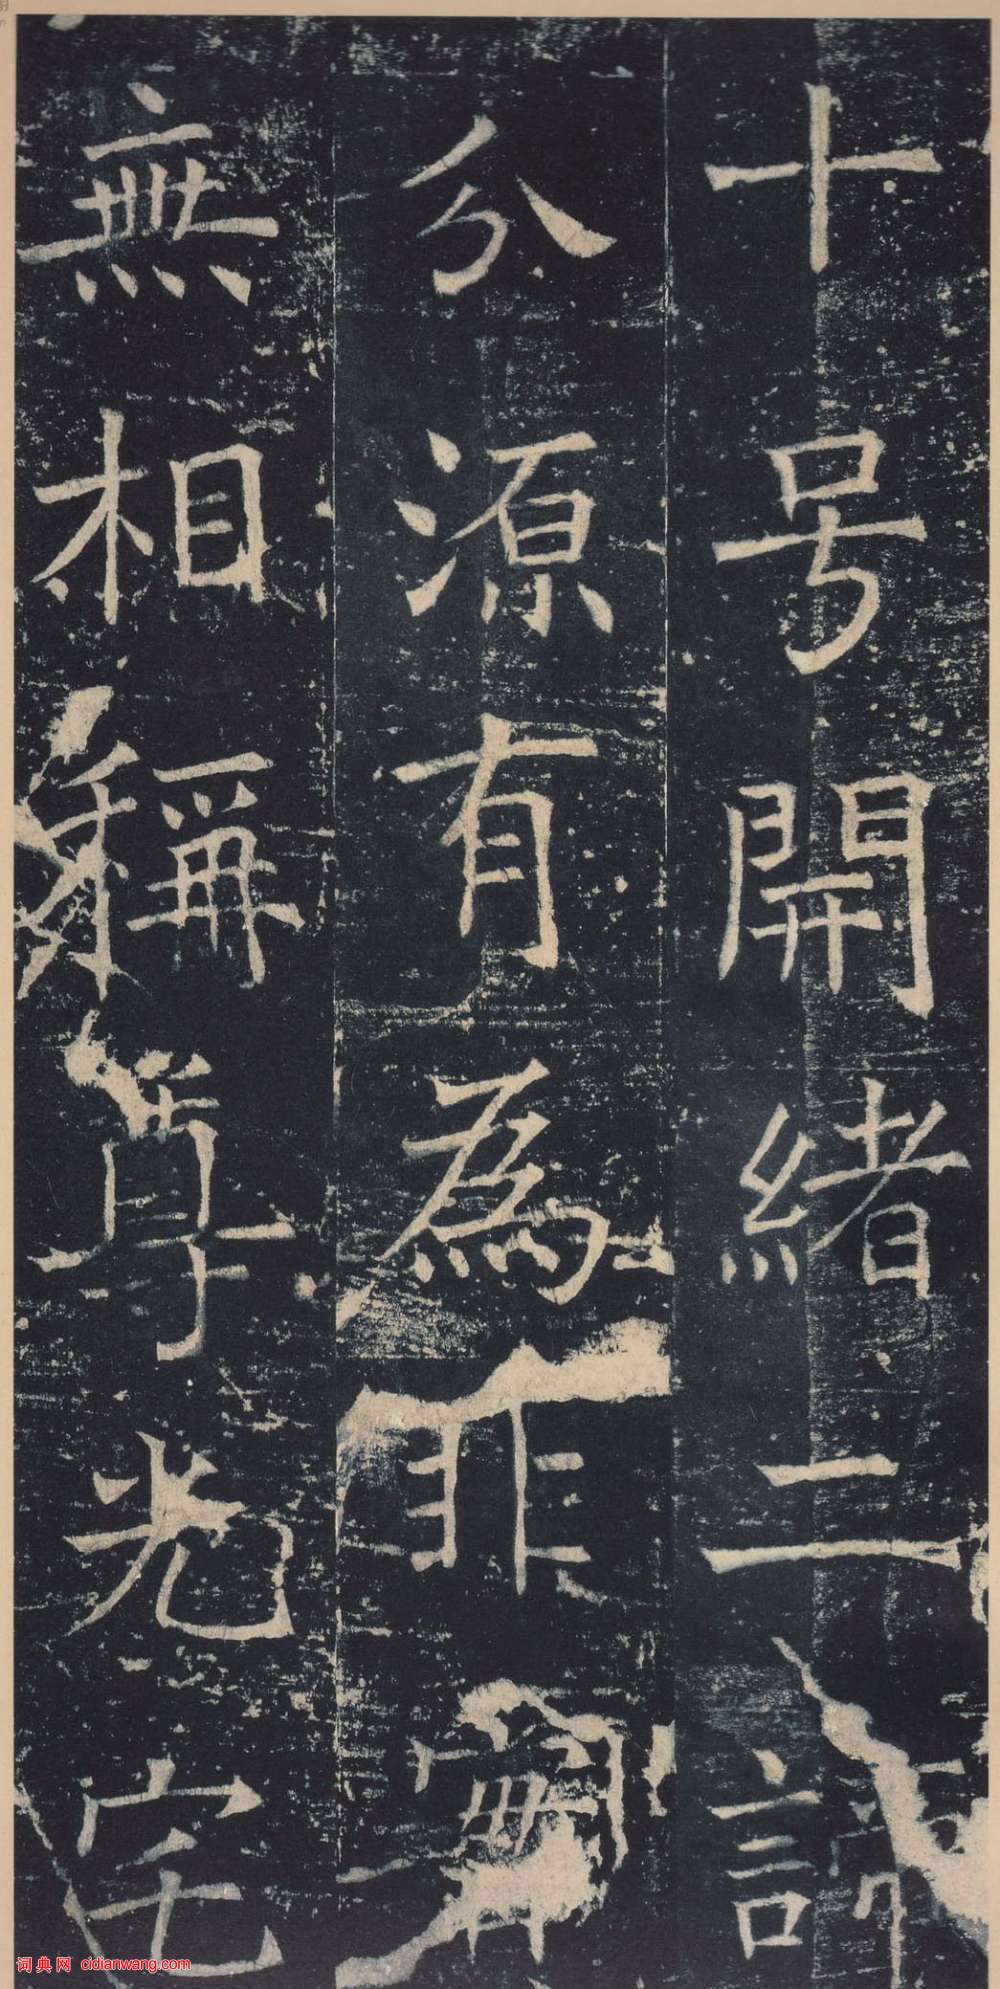 十号開緒二諦
分源有為非實
無相稱尊光宅
词典网 cidianwang.com